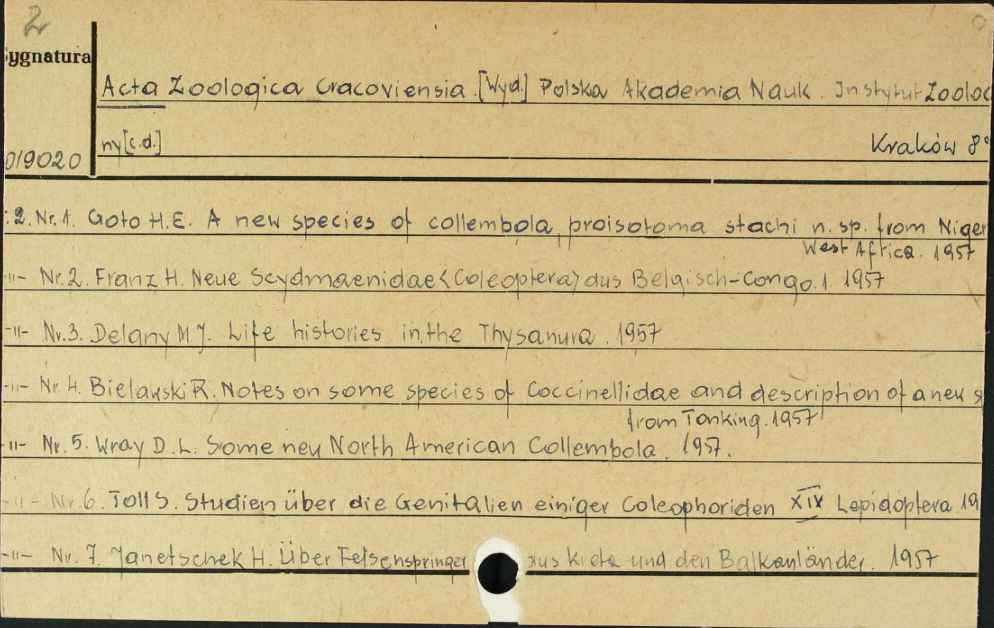 2
ygnatura
Acta Zoologica Cracoviensia. [Wyd.] Polska Akademia Nauk. Instytut Zoolog
ny [c.d.] Kraków 8°
019020
2. Nr. 1. Goto H.E. A new species of collembola, proisotoma stachi n. sp. from Niger
West Africa. 1957
-"- Nr. 2. Franz H. Neue Scydmaenidae <Coleoptera> aus Belgisch-Congo. 1 1957
-"- Nr. 3. Delany M.J. Life histories in the Thysanura. 1957
-"- Nr 4. Bielawski R. Notes on some species of Coccinellidae and description of a new s
from Tonking. 1957
-"- Nr. 5. Wray D.L. Some new North American Collembola. 1957.
-"- Nr. 6. Toll S. Studien über die Genitalien einiger Coleophoriden XIX Lepidoptera 19
-"- Nr. 7. Janetschek H. Über Felsenspringer aus Kreta und den Balkanländer. 1957